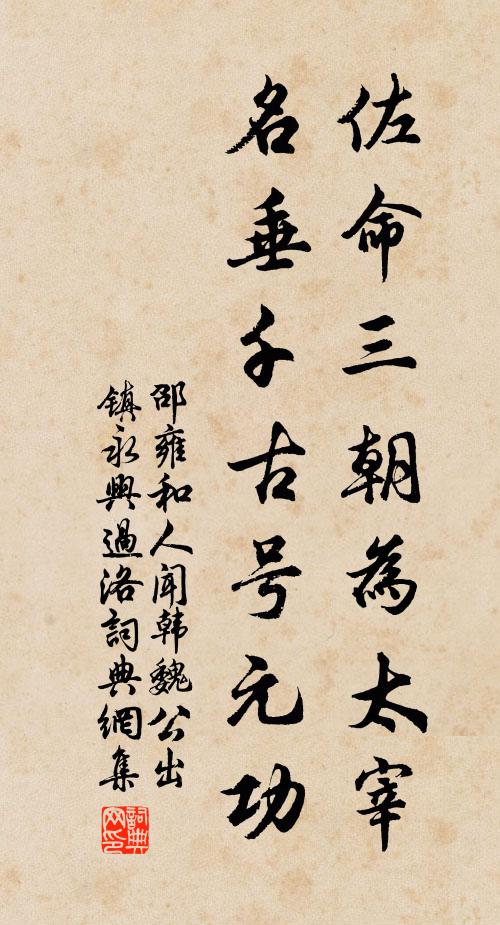 佐命三朝為太宰
名垂千古号元功
邵雍和人闻韩魏公出
鎮永興過洛詞典網集
詞典网印